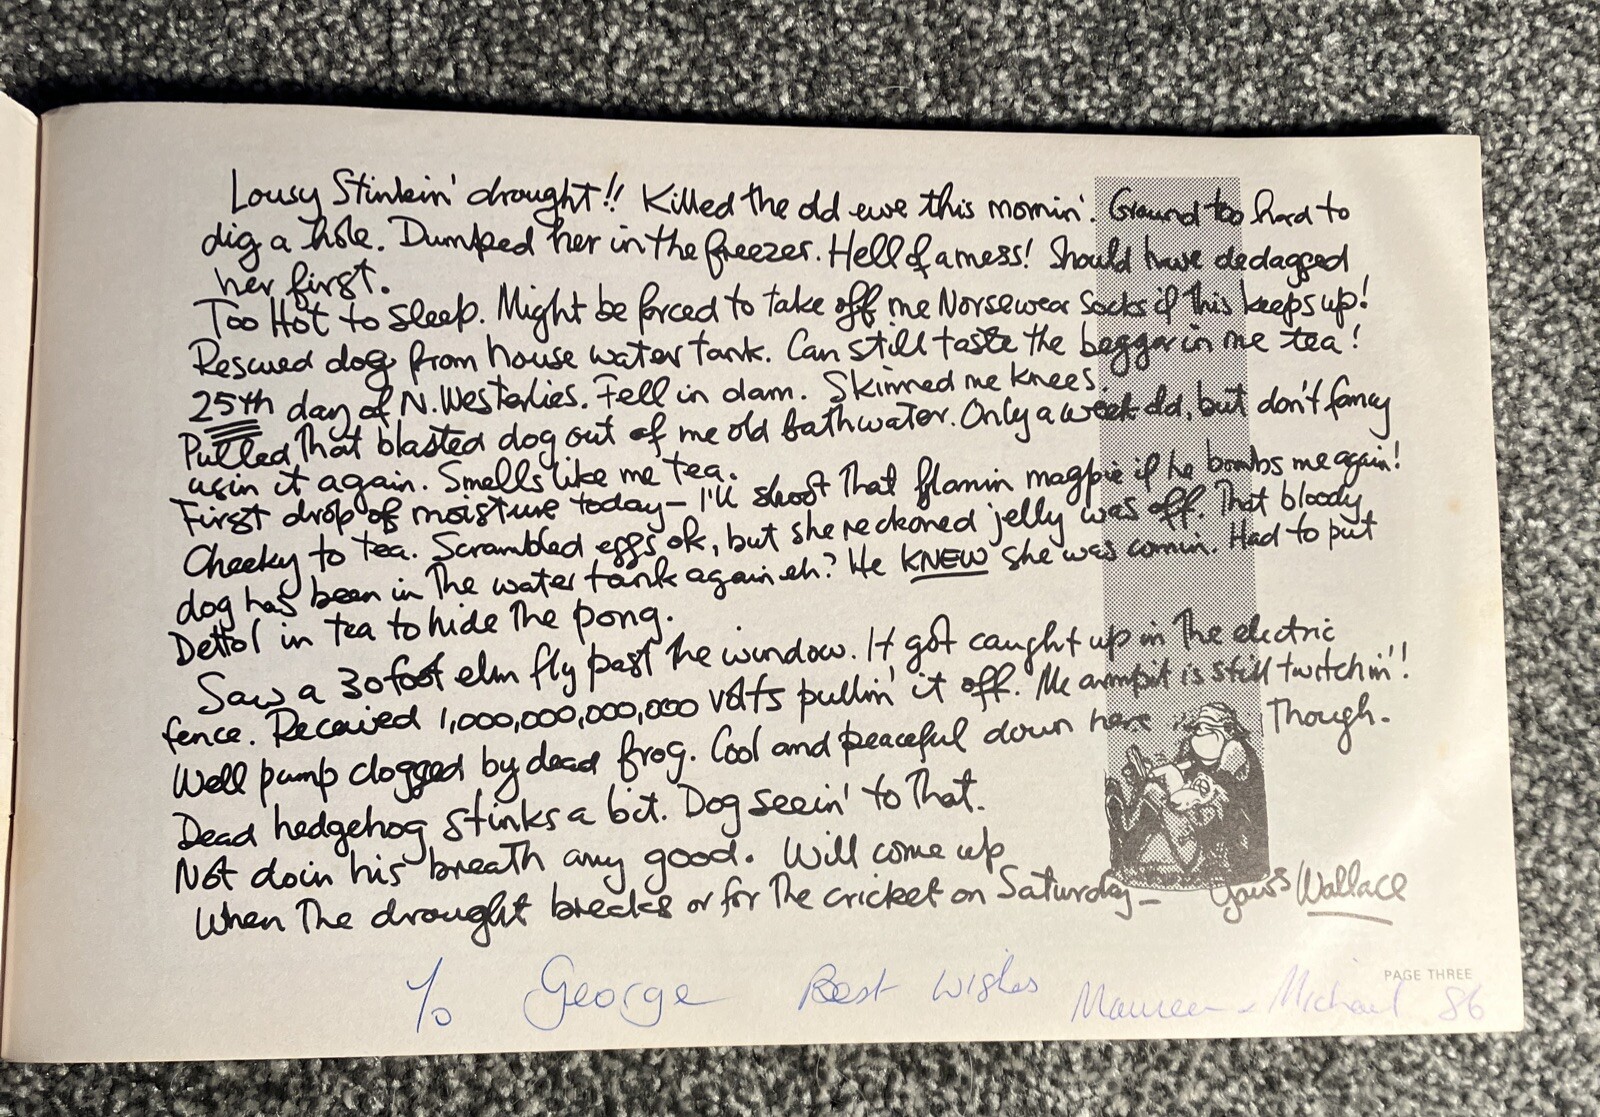 Lousy Stinkin' drought!! Killed the old ewe this mornin'. Ground too hard to
dig a hole. Dumped her in the freezer. Hell of a mess! Should have dedagged
her first.
Too Hot to sleep. Might be forced to take off me Norsewear Socks if this keeps up!
Rescued dog from house water tank. Can still taste the beggar in me tea!
25th day of N. Westerlies. Fell in dam. Skinned me knees.
Pulled That blasted dog out of me old bathwater. Only a week old, but don't fancy
usin it again. Smells like me tea.
First drop of moisture today - I'll shoot That flamin magpie if he bombs me again!
Cheeky to tea. Scrambled eggs ok, but she reckoned jelly was off. That bloody
dog has been in The water tank again eh? He KNEW she was comin. Had to put
Dettol in tea to hide The pong.
Saw a 30 foot elm fly past The window. It got caught up in The electric
fence. Received 1,000,000,000,000 volts pullin' it off. Me armpit is still twitchin'!
Well pump clogged by dead frog. Cool and peaceful down here Though.
Dead hedgehog stinks a bit. Dog seein' to That.
Not doin his breath any good. Will come up
When The drought breaks or for The cricket on Saturday - Yours Wallace
PAGE THREE
To George Best Wishes Maureen & Michael 86